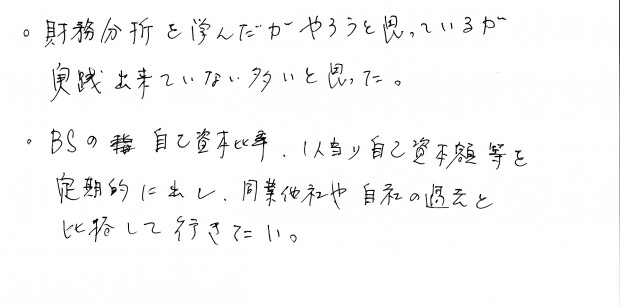 。財務分析を学んだがやろうと思っているが
実践出来ていない多いと思った。
。BSの 自己資本比率、1人当り自己資本額等を
定期的に出し、同業他社や自社の過去と
比較して行きたい。